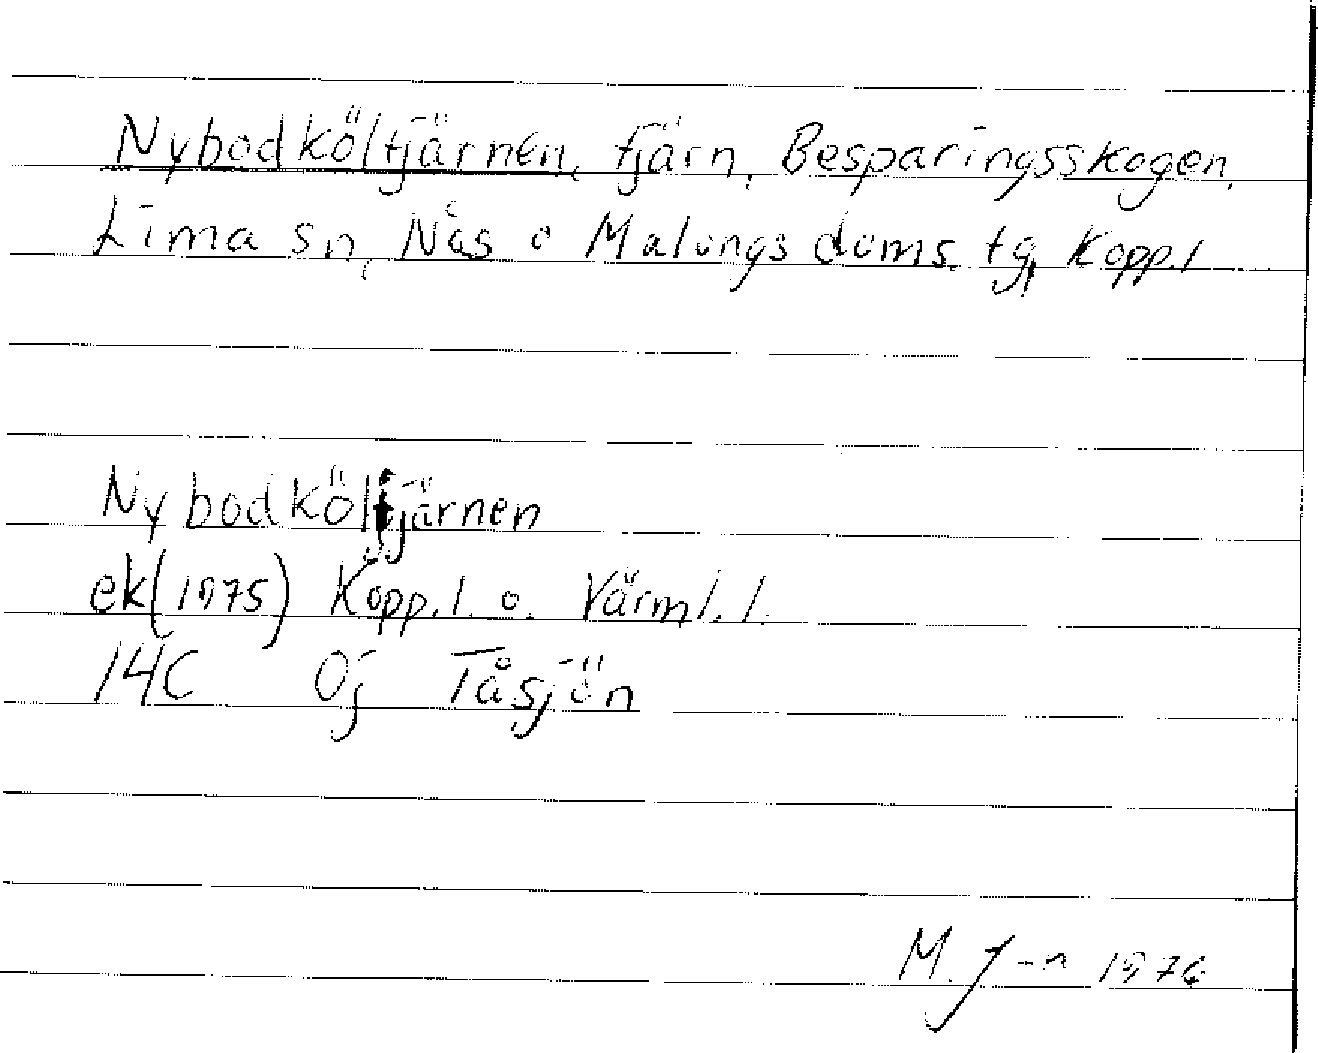 Nybodköltjärnen, tjärn, Besparingsskogen,
Lima sn, Nås o Malungs doms. tg, Kopp.l
Nybodköltjärnen
ek(1975) Kopp.l. o. Värml.l.
14C Öj Tåsjön
M. J-n 1976